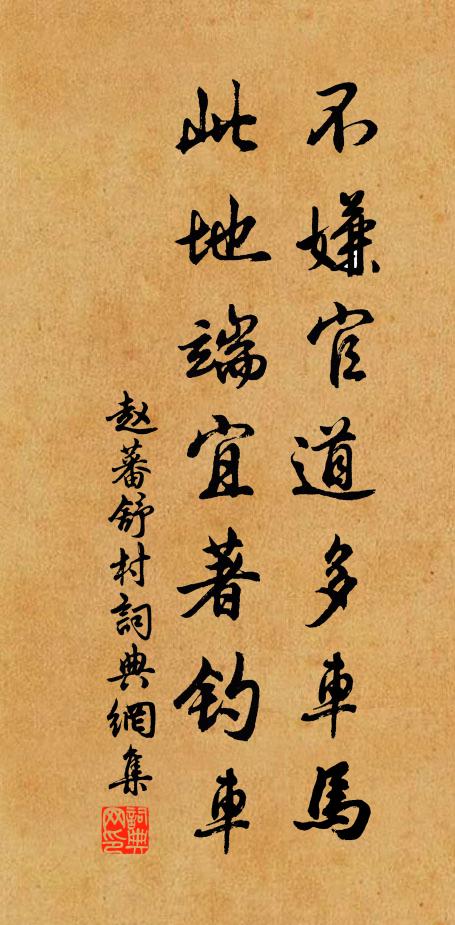 不嫌官道多車馬
此地端宜著釣車
赵蕃舒村詞典網集
詞典网印